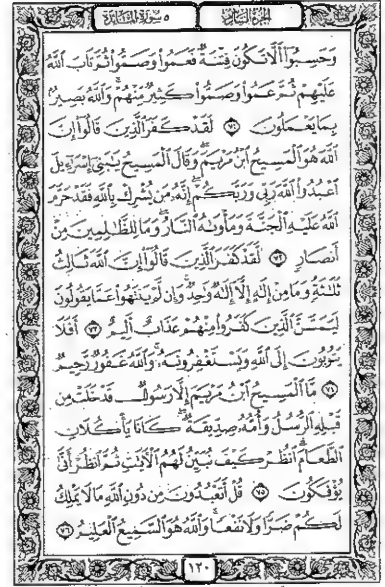 الجزء السادس ٥ سورة المائدة
وَحَسِبُوٓا۟ أَلَّا تَكُونَ فِتْنَةٌ فَعَمُوا۟ وَصَمُّوا۟ ثُمَّ تَابَ ٱللَّهُ
عَلَيْهِمْ ثُمَّ عَمُوا۟ وَصَمُّوا۟ كَثِيرٌ مِّنْهُمْ ۚ وَٱللَّهُ بَصِيرٌۢ
بِمَا يَعْمَلُونَ ٧١ لَقَدْ كَفَرَ ٱلَّذِينَ قَالُوٓا۟ إِنَّ
ٱللَّهَ هُوَ ٱلْمَسِيحُ ٱبْنُ مَرْيَمَ ۖ وَقَالَ ٱلْمَسِيحُ يَٰبَنِىٓ إِسْرَٰٓءِيلَ
ٱعْبُدُوا۟ ٱللَّهَ رَبِّى وَرَبَّكُمْ ۖ إِنَّهُۥ مَن يُشْرِكْ بِٱللَّهِ فَقَدْ حَرَّمَ
ٱللَّهُ عَلَيْهِ ٱلْجَنَّةَ وَمَأْوَىٰهُ ٱلنَّارُ ۖ وَمَا لِلظَّٰلِمِينَ مِنْ
أَنصَارٍ ٧٢ لَّقَدْ كَفَرَ ٱلَّذِينَ قَالُوٓا۟ إِنَّ ٱللَّهَ ثَالِثُ
ثَلَٰثَةٍ ۘ وَمَا مِنْ إِلَٰهٍ إِلَّآ إِلَٰهٌ وَٰحِدٌ ۚ وَإِن لَّمْ يَنتَهُوا۟ عَمَّا يَقُولُونَ
لَيَمَسَّنَّ ٱلَّذِينَ كَفَرُوا۟ مِنْهُمْ عَذَابٌ أَلِيمٌ ٧٣ أَفَلَا
يَتُوبُونَ إِلَى ٱللَّهِ وَيَسْتَغْفِرُونَهُۥ ۚ وَٱللَّهُ غَفُورٌ رَّحِيمٌ
٧٤ مَّا ٱلْمَسِيحُ ٱبْنُ مَرْيَمَ إِلَّا رَسُولٌ قَدْ خَلَتْ مِن
قَبْلِهِ ٱلرُّسُلُ وَأُمُّهُۥ صِدِّيقَةٌ ۖ كَانَا يَأْكُلَانِ
ٱلطَّعَامَ ۗ ٱنظُرْ كَيْفَ نُبَيِّنُ لَهُمُ ٱلْءَايَٰتِ ثُمَّ ٱنظُرْ أَنَّىٰ
يُؤْفَكُونَ ٧٥ قُلْ أَتَعْبُدُونَ مِن دُونِ ٱللَّهِ مَا لَا يَمْلِكُ
لَكُمْ ضَرًّا وَلَا نَفْعًا ۚ وَٱللَّهُ هُوَ ٱلسَّمِيعُ ٱلْعَلِيمُ ٧٦
١٢٠